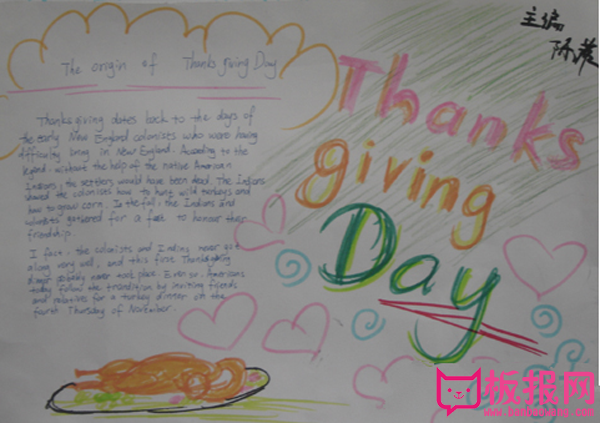 主编
The origin of Thanks giving Day
Thanks
giving
Day
Thanks giving dates back to the days of
the early New England colonists who were having
difficulty living in New England. According to the
legend, without the help of the native American
Indians, the settlers would have been dead. The Indians
showed the colonists how to hunt wild turkeys and
how to grow corn. In the fall, the Indians and
colonists gathered for a feast to honour their
friendship.
I fact, the colonists and Indians never got
along very well, and this first Thanksgiving
dinner never took place. Even so, Americans
today follow the trandition by inviting friends
and relatives for a turkey dinner on the
fourth Thursday of November.
板报网